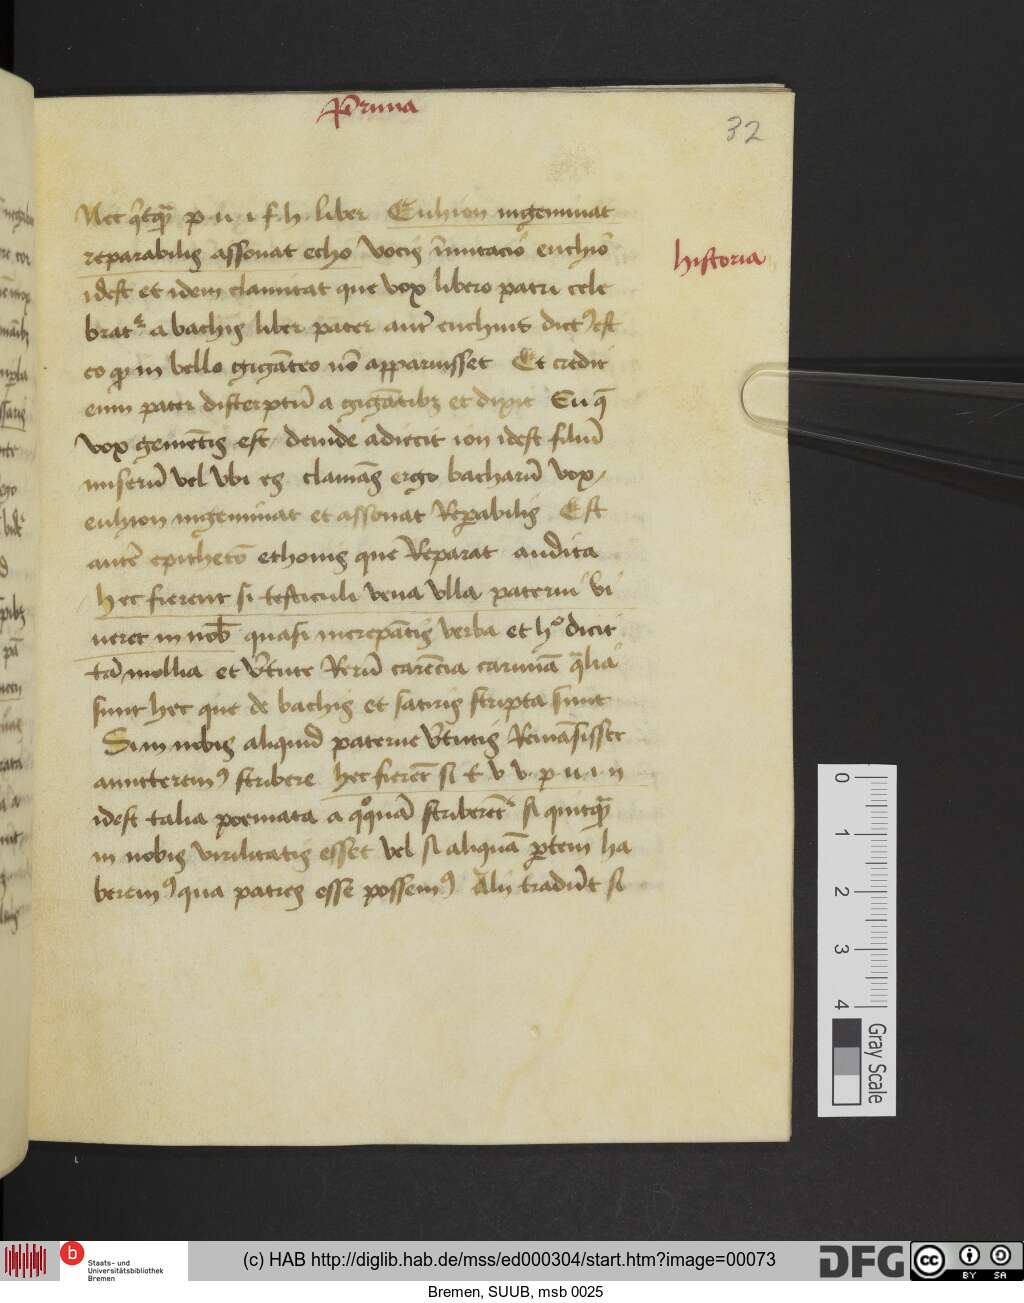 Pruna
32
Nec q̄cq̄ p · u · i · f · h · liber Euhion ingeminat
reparabilis assonat echo vocis īmitacio euchio
historia
idest et idem clamitat que vox libero patri cele
brat᷑ a bachis liber pater aut̄ euchius dictꝰ est
eo ꝙ in bello gigāteo nō apparuisset Et credit
eum pater discerptū a gigātibꝫ et dixit Eu q̄
vox gemētis est deinde adiecit ion idest filiū
miserū vel vbi es clamās ergo bacharū vox
euhion ingeminat et assonat Reꝑabilis Est
autē epithetō ethonis que Reparat audita
hec fierent si testiculi vena vlla paterni vi
ueret in nob̄ quasi increpātis verba et hͦ dicit
tā mollia et v̄tute Rerū carēcia carminā q̄lia
sunt hec que de bachis et satiris scripta sunt
Si in nobis aliquid paterne v̄tutis Remāsisset
amitteremꝰ scribere hec fierēt si t · v v · p · u · i · n
idest talia poemata a qͦquā scriberēt᷑ si quicq̄
in nobis virilitatis esset vel si aliquā ꝑtem ha
beremꝰ qua patres esse possemꝰ Alii tradūt si
0
1
2
3
4
Gray Scale
Staats- und
Universitätsbibliothek
Bremen
(c) HAB http://diglib.hab.de/mss/ed000304/start.htm?image=00073
DFG
cc BY SA
Bremen, SUUB, msb 0025